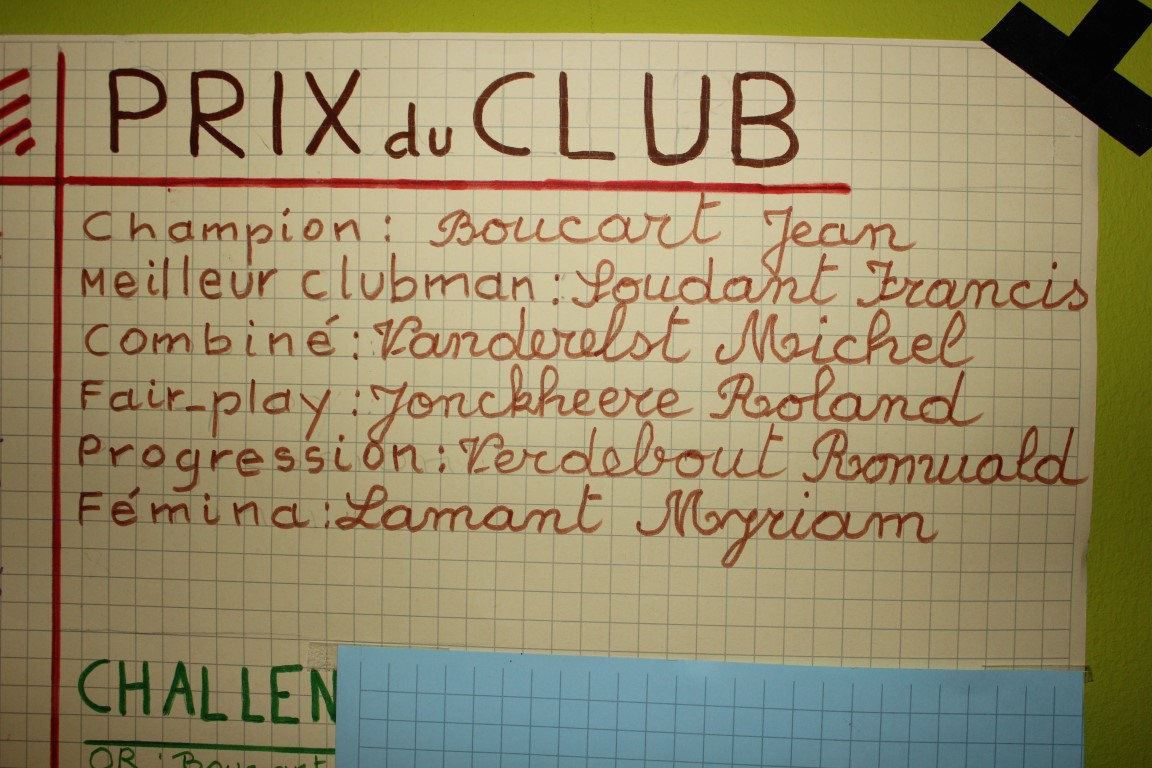 PRIX du CLUB
Champion : Boucart Jean
Meilleur clubman : Soudant Francis
Combiné : Vanderelst Michel
Fair-play : Jonckheere Roland
Progression : Verdebout Romuald
Fémina : Lamant Myriam
CHALLEN
OR : Boucart